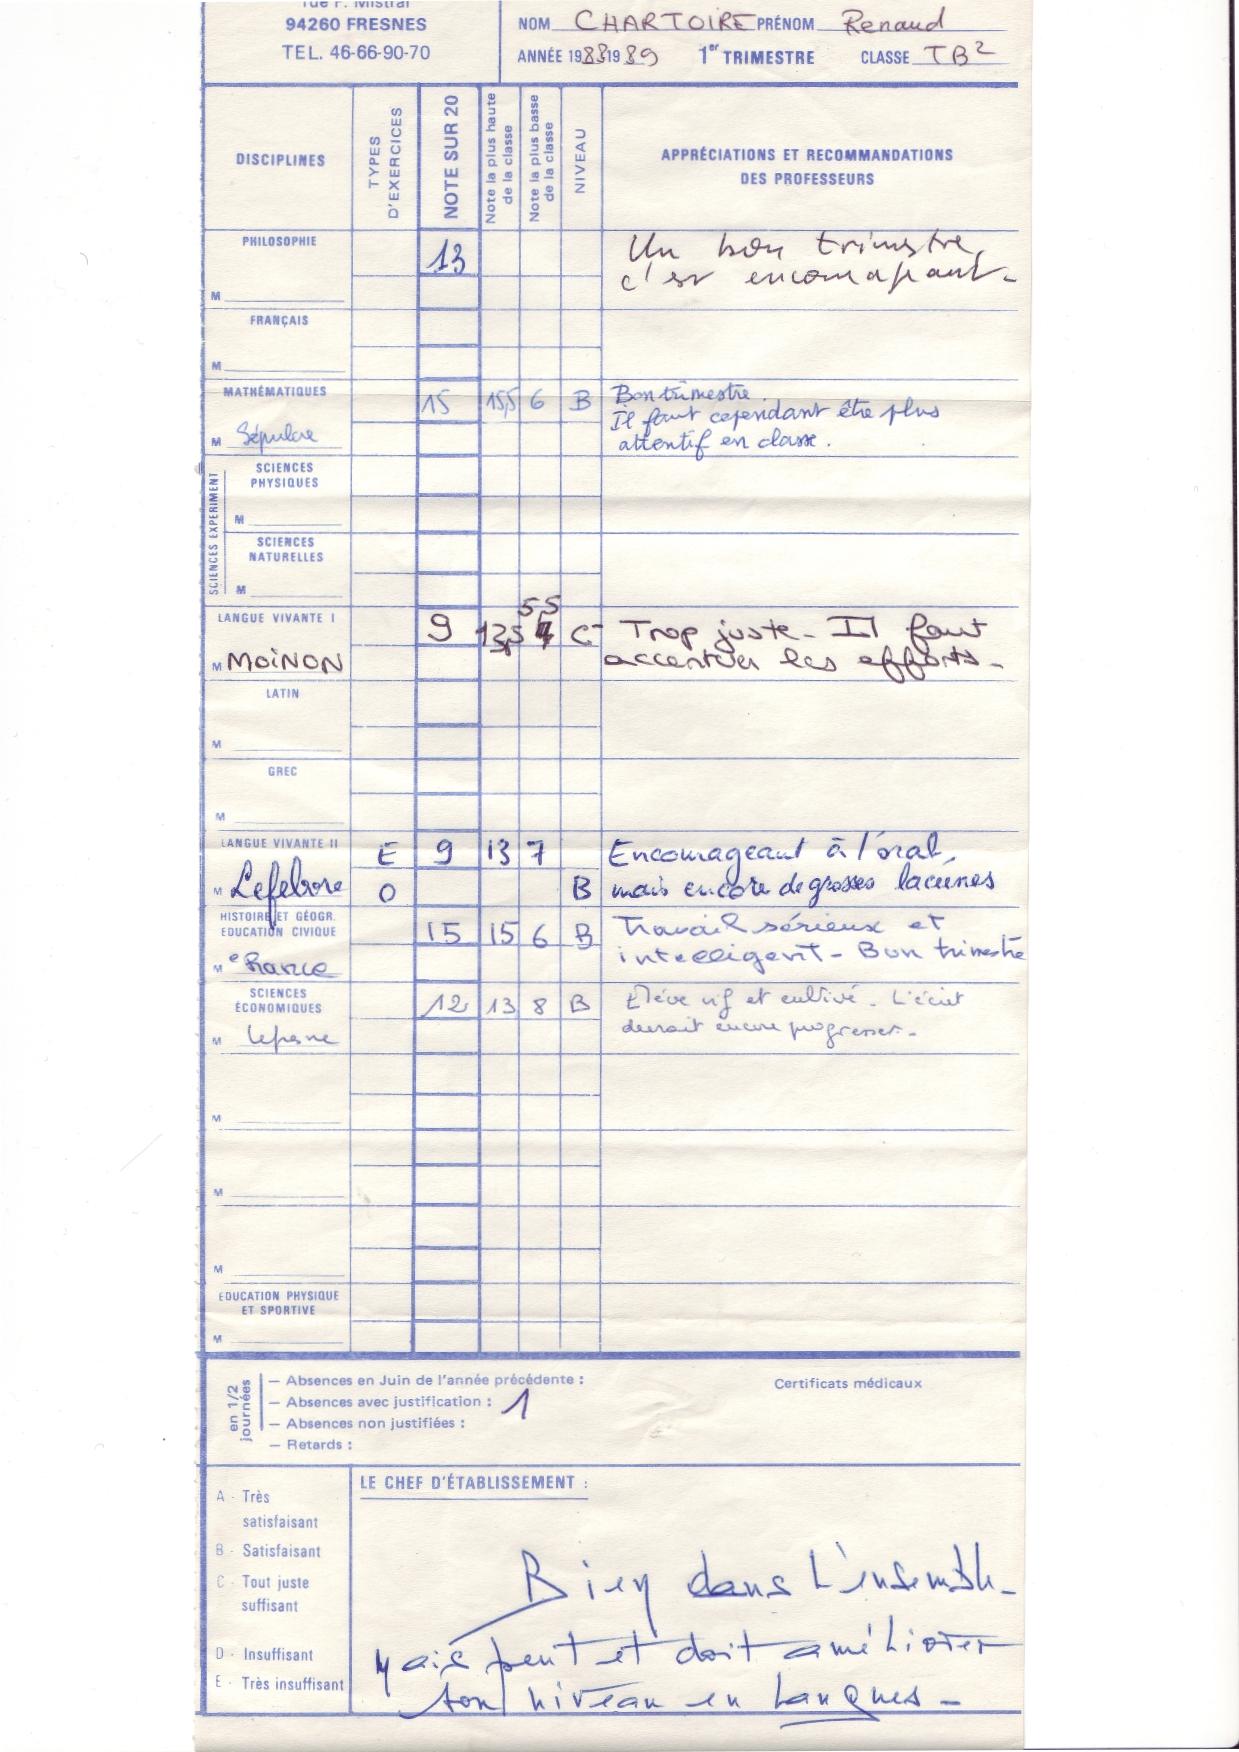 rue F. Mistral
94260 FRESNES
TEL. 46-66-90-70
NOM CHARTOIRE PRÉNOM Renaud
ANNÉE 1988 1989 1er TRIMESTRE CLASSE TB2
DISCIPLINES
TYPES D'EXERCICES
NOTE SUR 20
Note la plus haute de la classe
Note la plus basse de la classe
NIVEAU
APPRÉCIATIONS ET RECOMMANDATIONS
DES PROFESSEURS
PHILOSOPHIE
13
Un bon trimestre,
c'est encourageant.
M
FRANÇAIS
M
MATHÉMATIQUES
15 15,5 6 B
Bon trimestre.
Il faut cependant être plus
attentif en classe.
M Sépulcre
SCIENCES EXPERIMENT
SCIENCES
PHYSIQUES
M
SCIENCES
NATURELLES
M
LANGUE VIVANTE I
9 13,5 5,5 C-
Trop juste - Il faut
accentuer les efforts -
M MOINON
LATIN
M
GREC
M
LANGUE VIVANTE II
E 9 13 7
Encourageant à l'oral,
M Lefebvre O B mais encore de grosses lacunes
HISTOIRE ET GÉOGR.
EDUCATION CIVIQUE
15 15 6 B
Travail sérieux et
intelligent - Bon trimestre
M
SCIENCES
ÉCONOMIQUES
12 13 8 B
Elève vif et cultivé. L'écrit
devrait encore progresser.
M
M
M
M
EDUCATION PHYSIQUE
ET SPORTIVE
M
en 1/2 journées
— Absences en Juin de l'année précédente :
Certificats médicaux
— Absences avec justification : 1
— Absences non justifiées :
— Retards :
LE CHEF D'ÉTABLISSEMENT :
A - Très
satisfaisant
B - Satisfaisant
C - Tout juste
suffisant
D - Insuffisant
E - Très insuffisant
Bien dans l'ensemble -
Mais peut et doit améliorer
son niveau en langues -